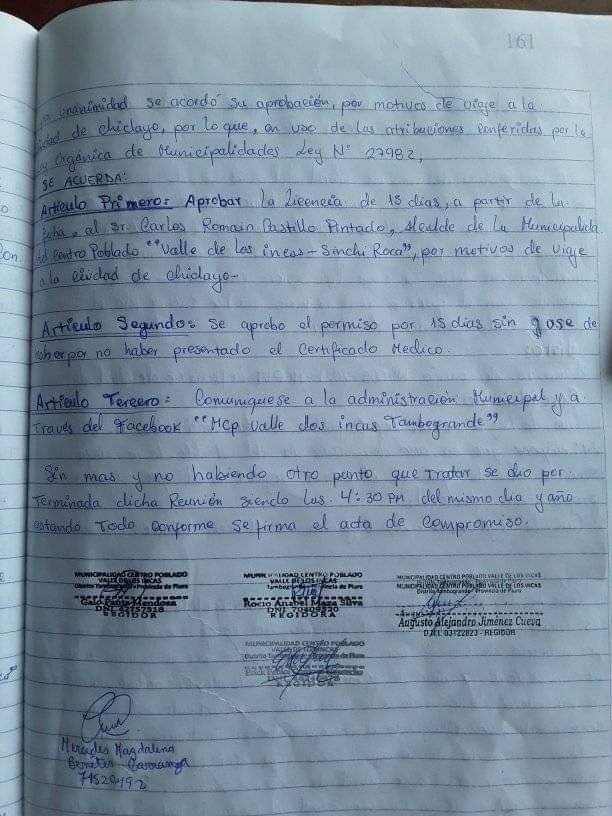 161
unanimidad se acordó su aprobación, por motivos de viaje a la
de chiclayo, por lo que, en uso de las atribuciones conferidas por la
Orgánica de Municipalidades Ley N° 27982,
SE ACUERDA:
Articulo Primero: Aprobar La Licencia de 15 dias, a partir de la
fecha, al Sr. Carlos Romain Castillo Pintado, Alcalde de la Municipalidad
del Centro Poblado "Valle de los incas - Sinchi Roca", por motivos de viaje
a la ciudad de chiclayo-
Articulo Segundo: Se aprobo el permiso por 15 dias sin gose de
haber por no haber presentado el Certificado Medico.
Articulo Tercero: Comuniquese a la administración Municipal y a
Traves del Facebook "Mcp valle dos incas Tambogrande"
Sin mas y no habiendo otro punto que Tratar se dio por
Terminada dicha Reunión siendo las 4:30 PM del mismo dia y año
estando Todo conforme se firma el acta de compromiso.
MUNICIPALIDAD CENTRO POBLADO
VALLE DE LOS INCAS
Distrito Tambogrande - Provincia de Piura
Mendoza
REGIDOR
MUNICIPALIDAD CENTRO POBLADO
VALLE DE LOS INCAS
Rocio Anabel Maza Silva
REGIDORA
MUNICIPALIDAD CENTRO POBLADO VALLE DE LOS INCAS
Distrito Tambogrande - Provincia de Piura
Augusto Alejandro Jiménez Cueva
D.N.I. 03122823 - REGIDOR
MUNICIPALIDAD CENTRO POBLADO
VALLE DE LOS INCAS
Distrito Tambogrande - Provincia de Piura
REGIDOR
Mercedes Magdalena